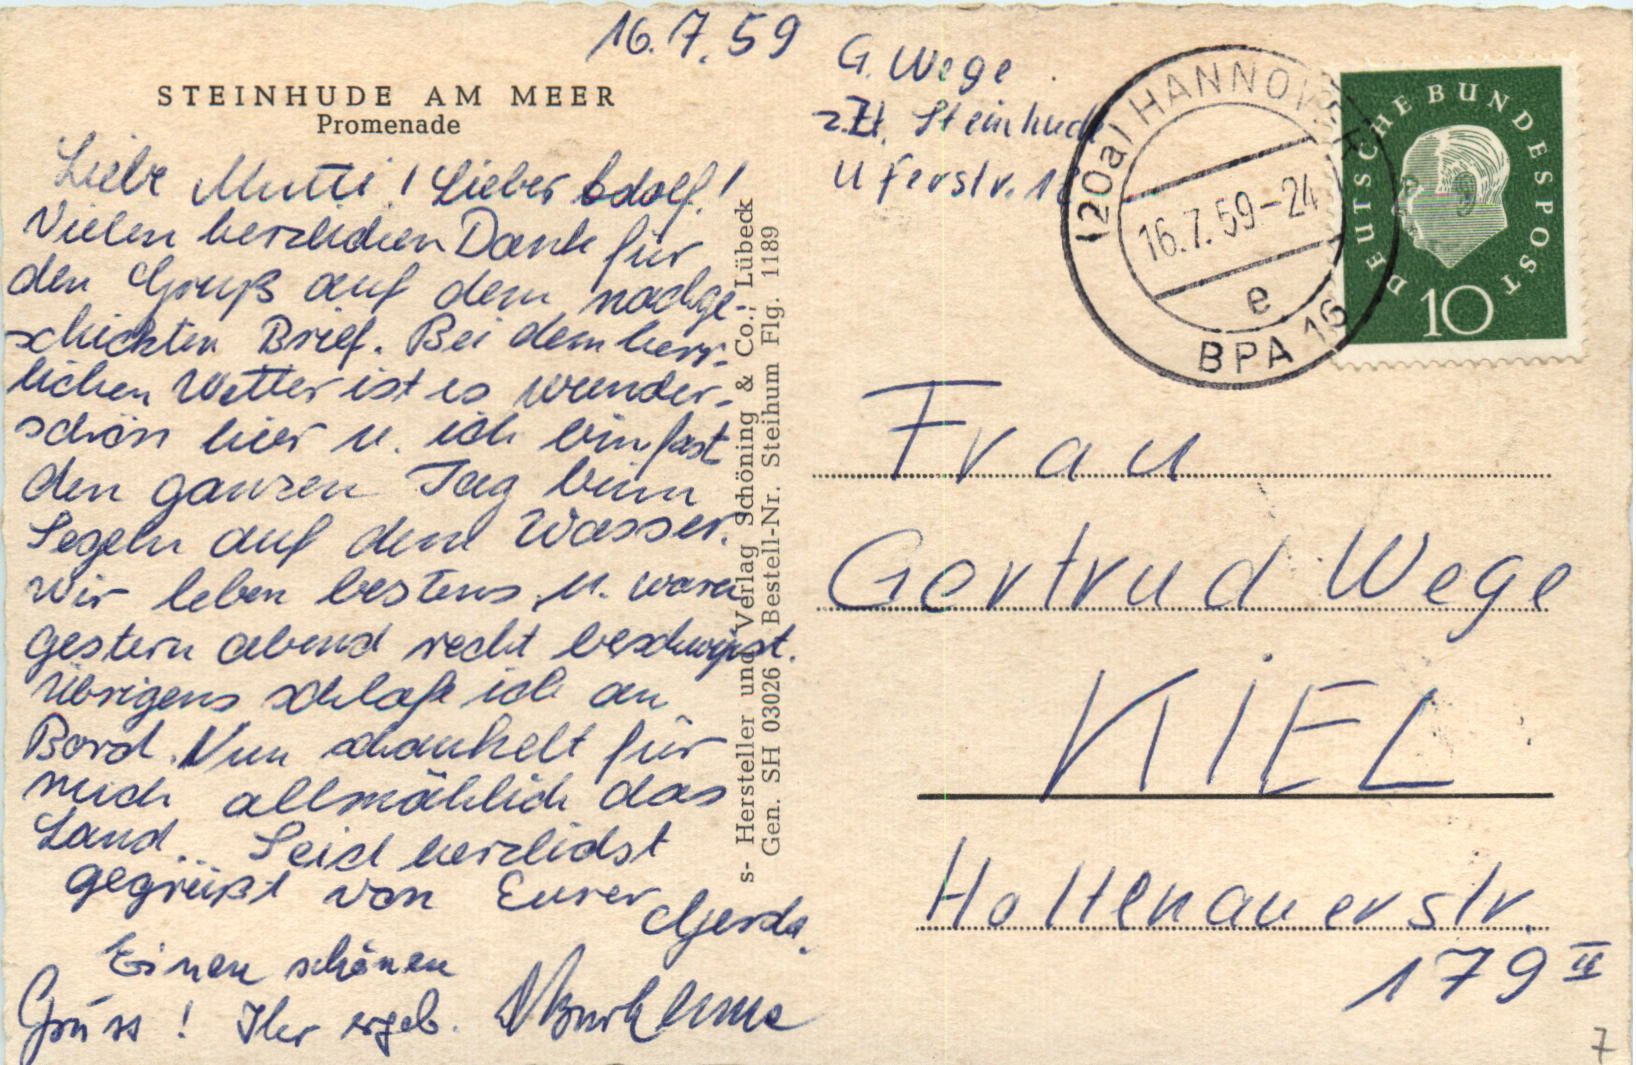 16.7.59
STEINHUDE AM MEER
Promenade
Liebe Mutti! Lieber Adolf!
Vielen herzlichen Dank für
den Gruß auf dem nachge-
schickten Brief. Bei dem herr-
lichen Wetter ist es wunder-
schön hier u. ich bin fast
den ganzen Tag beim
Segeln auf dem Wasser.
Wir leben bestens u. waren
gestern abend recht beschwipst.
Übrigens schlafe ich an
Bord. Nun schaukelt für
mich allmählich das
Land. Seid herzlichst
gegrüßt von Eurer
Gerda.
Einen schönen
Gruss! Ihr ergeb.
s- Hersteller und Verlag Schöning & Co., Lübeck
Gen. SH 03026 Bestell-Nr. Steihum Flg. 1189
G. Wege
z.Zt. Steinhude
Uferstr.
(20a) HANNOVER
16.7.59-24
e
BPA 16
DEUTSCHE BUNDESPOST
10
Frau
Gertrud Wege
KIEL
Holtenauerstr.
179 II
7